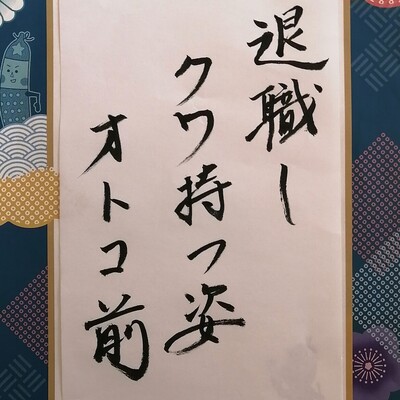 退職し
クワ持つ姿
オトコ前